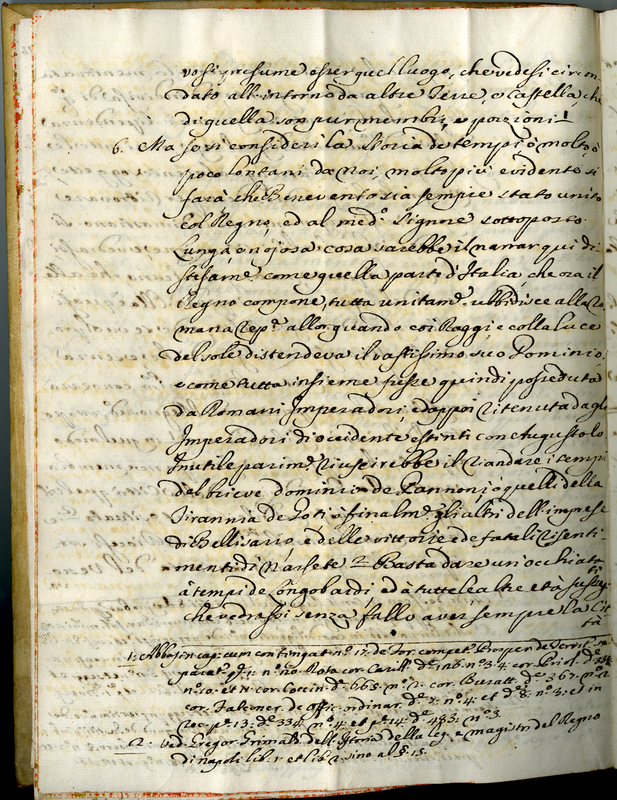 vosi presume esser quel luogo, che vedesi circon
dato all'intorno da altre Terre, e Castella, che
di quella son pur membri, e porzioni 1
6. Ma se si consideri la Storia de tempi, ò molto, ò
poco lontani da noi, molto più evidente si
farà che Benevento sia sempre stato unito
col Regno, ed al med.º Signore sottoposto.
Lunga, e nojosa cosa sarebbe il narrar qui di
stesam.e come quella parte d'Italia, che ora il
Regno compone, tutta unitam.e ubbidisce alla Ro
mana Rep.ca allor quando coi Raggi, e colla luce
del sole distendeva il vastissimo suo Dominio;
e come tutta insieme fusse quindi posseduta
da Romani Imperadori, e dappoi ritenuta dagl'
Imperadori di occidente estinti con Augustolo
Inutile parim.e riuscirebbe il riandare i tempi
del brieve dominio de Pannonj, o quelli della
Tirannia de Goti, o finalm.e gli altri dell'imprese
di Bellisario, e delle vittorie, e de fatali risenti
menti di Narsete 2 Basta dare un'occhiata
à tempi de Longobardi, ed à tutte le altre età
che vedrassi senza fallo aver sempre la Cit
tà
1. Abbas in cap: cum contingat n.º 17. de for. compet. Prosper de
n.º 10. Rota cor. n.º 3. 4. cor.
n.º 10. et cor. Coccin. d. 665. n.º 2. cor. Buratt. d. 367. n.º 2
cor. Falconer. de offic. ordinar. d. 2. n.º 4. et d. 8. n.º 3. et in
Rec. p.e 13. d. 334. n.º 4. et p.e 14. d. 483. n.º 3.
2. ved. Gregor. Grimald. dell'Istoria della leg. e magistr. del Regno
di napoli lib. 1. et lib. 2. sino al §. 15.